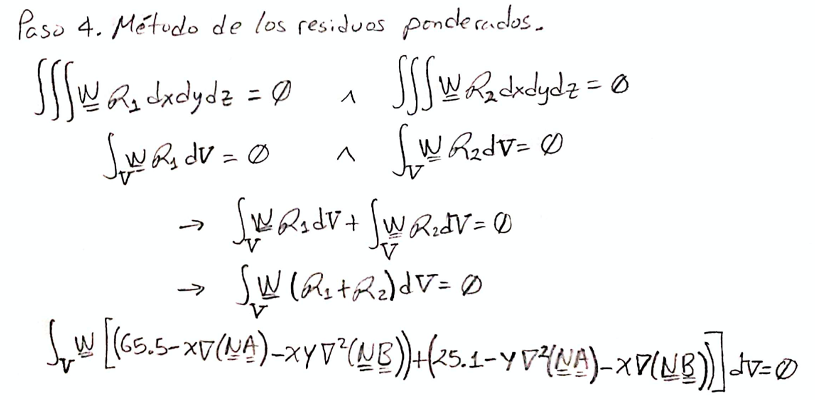 Paso 4. Método de los residuos ponderados.
∭ W̳ R₁ dxdydz = ∅ ∧ ∭ W̳ R₂ dxdydz = ∅
∫_V W̳ R₁ dV = ∅ ∧ ∫_V W̳ R₂ dV = ∅
→ ∫_V W̳ R₁ dV + ∫_V W̳ R₂ dV = ∅
→ ∫_V W̳ (R₁ + R₂) dV = ∅
∫_V W̳ [(65.5 - x∇(N̳A̳) - xy∇²(N̳B̳)) + (25.1 - y∇²(N̳A̳) - x∇(N̳B̳))] dV = ∅